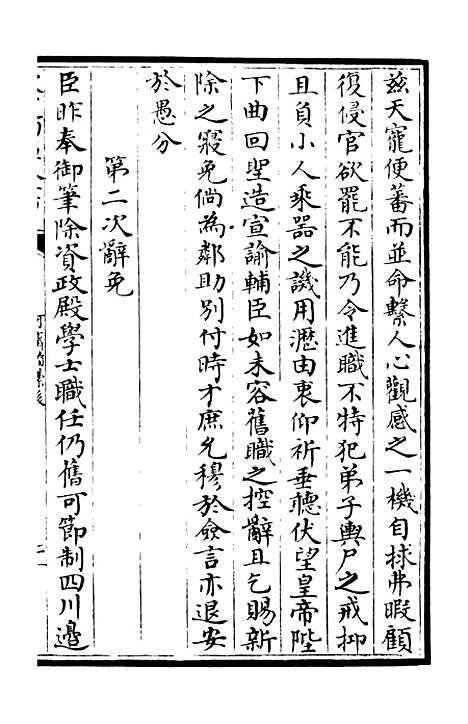 茲天寵便蕃而並命繫人心觀感之一機自揆弗暇顧
復侵官欲罷不能乃令進職不特犯弟子輿尸之戒抑
且負小人乘器之譏用瀝由衷仰祈垂聽伏望皇帝陛
下曲回聖造宣諭輔臣如未容舊職之控辭且乞賜新
除之寢免倘為鄰助別付時才庶允穆於僉言亦退安
於愚分
第二次辭免
臣昨奉御筆除資政殿學士職任仍舊可節制四川邊
可齋續藁後